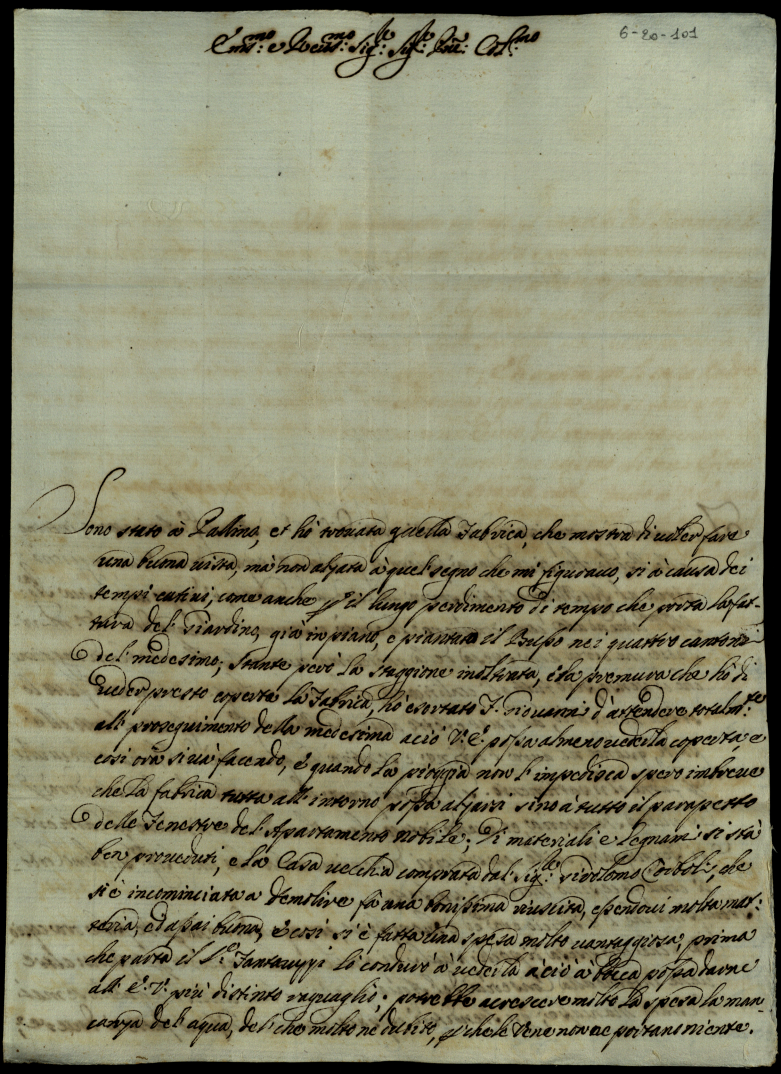 6-20-101
Em̃mo: e Rever̃mo: Sig:re Sig:re Pñe: Col:mo
Sono stato à Pallina, et hò trovata quella Fabrica, che mostra di voler fare
una buona vista, mà non alzata à quel segno che mi figuravo, si à causa dei
tempi cattivi, come anche p il lungo perdimento di tempo che porta la fat-
tura del Giardino, già in piano, e piantato il Busso nei quattro cantoni
del medesimo; Stante però la staggione inoltrata, e la premura che hò di
veder presto coperta la Fabrica, hò esortato F. Giovanni d'attendere totalm.te
all proseguimento della medesima acciò V. E. possa almeno vederla coperta, e
così ora si và facendo, e quando la pioggia non l'impedisca spero in breve
che la fabrica tutta all'intorno possa alzarsi sino à tutto il parapetto
delle Fenestre del Apartamento nobile; Di materiali e legnami si stà
ben proveduti, e la Casa vecchia comprata dal Sig:re Girolamo Corboli, che
si è incominciata a demolire fà una bonissima riuscita, essendovi molta mat:
teria, ed assai buona, e così si è fatta una spesa molto vantaggiosa; prima
che parta il S.r Fantauzzi lo condurò à vederla acciò à bocca possa darne
all' E. V. più distinto raguaglio; potrebbe accrescere molto la spesa la man-
canza del' aqua, del che molto ne dubito, p che le Vene non ne portano niente.